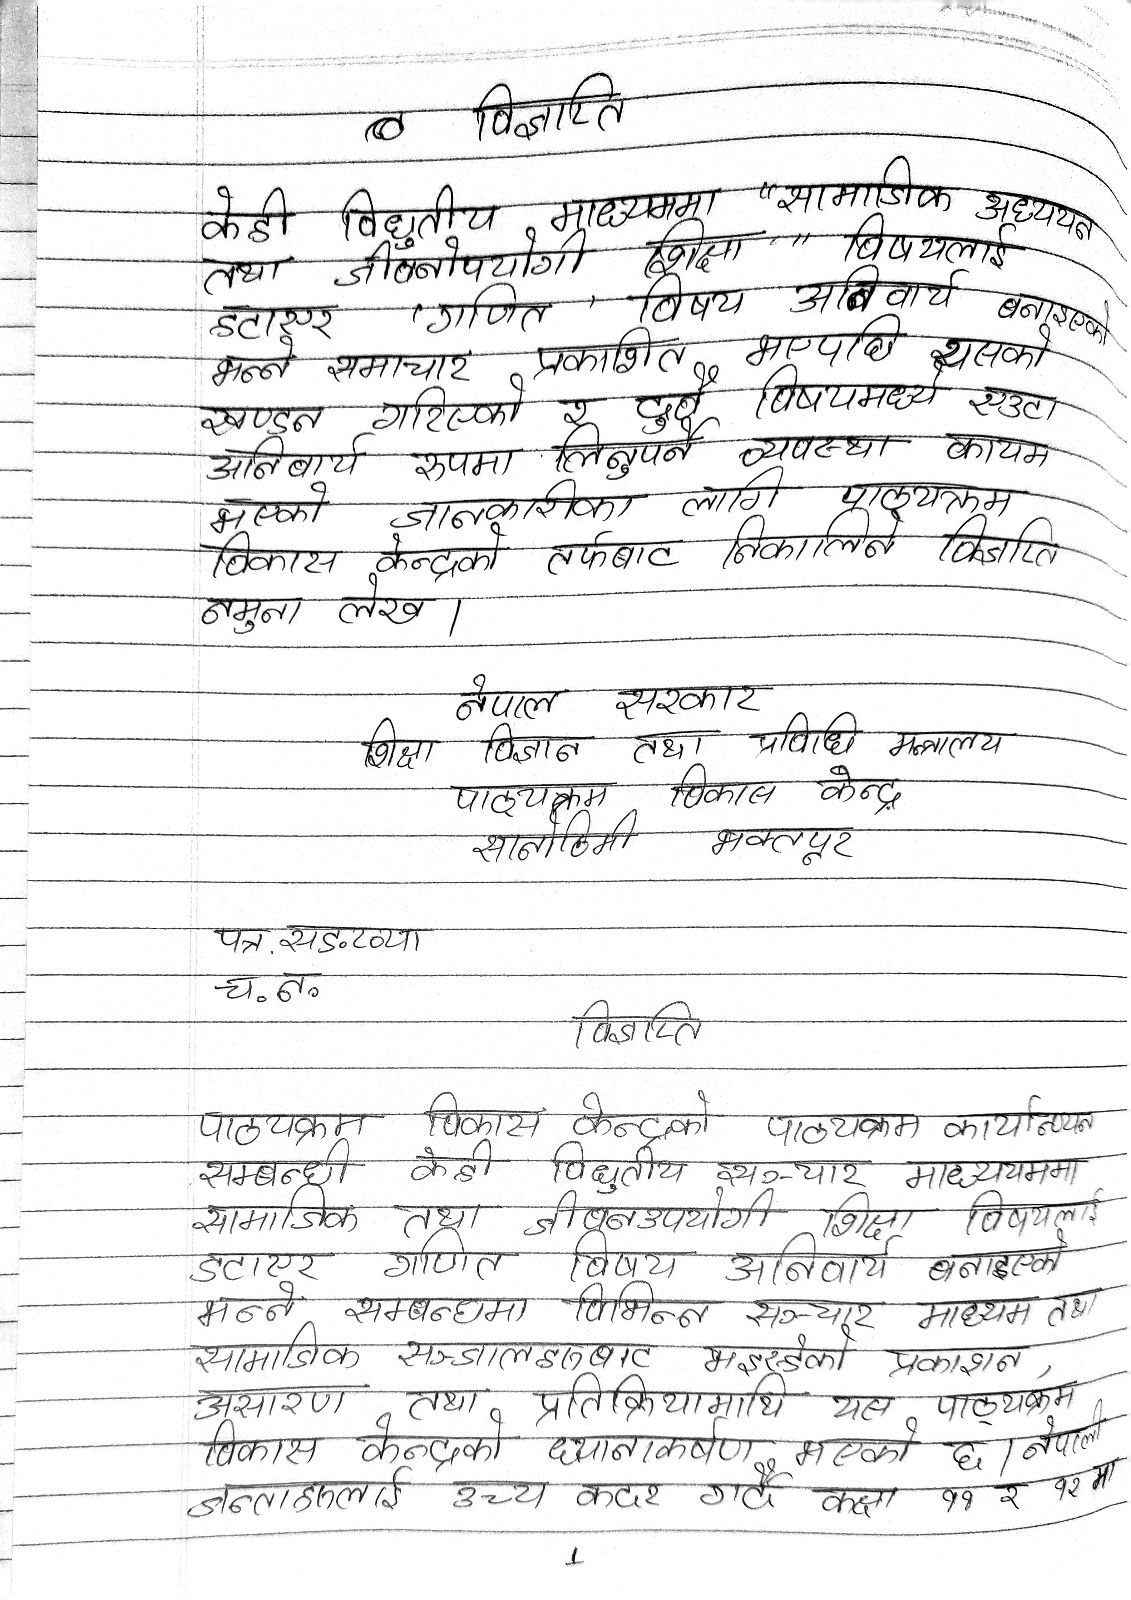 विज्ञप्ति
केही विधुतीय माध्यममा "सामाजिक अध्ययन
तथा जीवनोपयोगी शिक्षा" विषयलाई
हटाएर 'गणित' विषय अनिवार्य बनाइएको
भन्ने समाचार प्रकाशित भएपछि यसको
खण्डन गरिएको र दुवै विषयमध्ये एउटा
अनिवार्य रुपमा लिनुपर्ने व्यवस्था कायम
भएको जानकारीका लागि पाठ्यक्रम
विकास केन्द्रको तर्फबाट निकालिने विज्ञप्ति
नमुना लेख ।
नेपाल सरकार
शिक्षा विज्ञान तथा प्रविधि मन्त्रालय
पाठ्यक्रम विकास केन्द्र
सानोठिमी भक्तपूर
पत्र. सङ.ख्या
च. न.
विज्ञप्ति
पाठ्यक्रम विकास केन्द्रको पाठ्यक्रम कार्यान्वयन
सम्बन्धी केही विधुतीय सञ्चार माध्ययममा
सामाजिक तथा जीवनउपयोगी शिक्षा विषयलाई
हटाएर गणित विषय अनिवार्य बनाइएको
भन्ने सम्बन्धमा विभिन्न सञ्चार माध्यम तथा
सामाजिक सञ्जालहरुबाट भइरहेको प्रकाशन,
असारण तथा प्रतिक्रियामाथि यस पाठ्यक्रम
विकास केन्द्रको ध्यानाकर्षण भएको छ । नेपाली
जन्ताहरुलाई उच्य कदर गर्दै कक्षा ११ र १२ मा
1